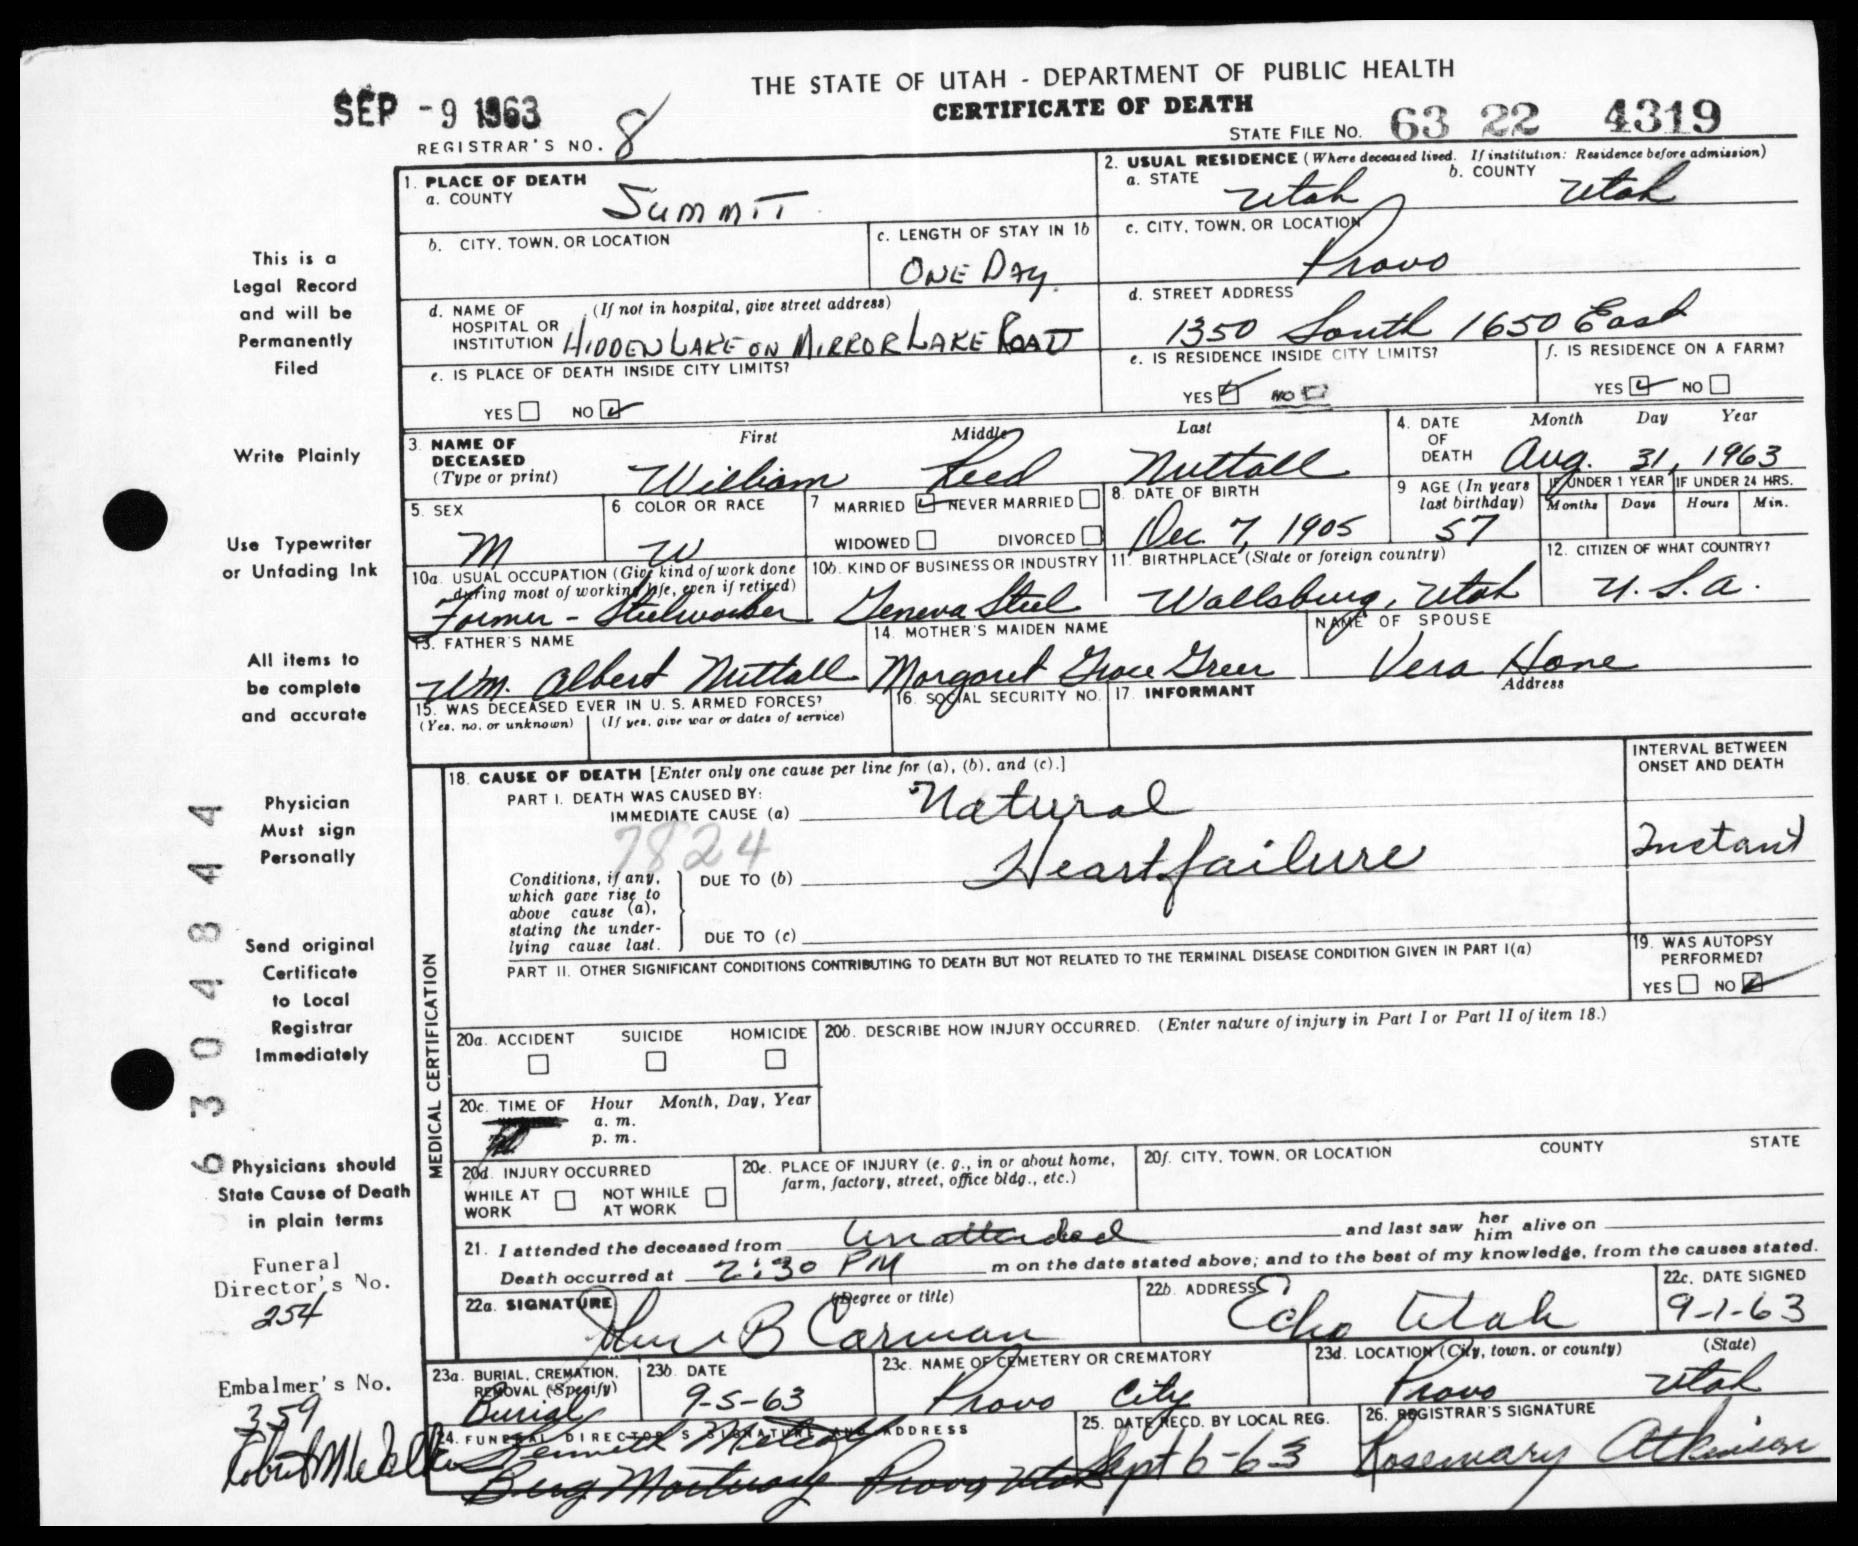 THE STATE OF UTAH - DEPARTMENT OF PUBLIC HEALTH
CERTIFICATE OF DEATH
SEP -9 1963
REGISTRAR'S NO. 8
STATE FILE NO. 63 22 4319
This is a
Legal Record
and will be
Permanently
Filed
Write Plainly
Use Typewriter
or Unfading Ink
All items to
be complete
and accurate
Physician
Must sign
Personally
Send original
Certificate
to Local
Registrar
Immediately
Physicians should
State Cause of Death
in plain terms
Funeral
Director's No.
254
Embalmer's No.
359
6304844
1. PLACE OF DEATH
a. COUNTY
SUMMIT
2. USUAL RESIDENCE (Where deceased lived. If institution: Residence before admission)
a. STATE Utah b. COUNTY Utah
b. CITY, TOWN, OR LOCATION
c. LENGTH OF STAY IN 1b
ONE DAY
c. CITY, TOWN, OR LOCATION
Provo
d. NAME OF HOSPITAL OR INSTITUTION (If not in hospital, give street address)
HIDDEN LAKE ON MIRROR LAKE ROAD
d. STREET ADDRESS
1350 South 1650 East
e. IS PLACE OF DEATH INSIDE CITY LIMITS?
YES NO
e. IS RESIDENCE INSIDE CITY LIMITS?
YES NO
f. IS RESIDENCE ON A FARM?
YES NO
3. NAME OF DECEASED (Type or print)
First Middle Last
William Reed Nuttall
4. DATE OF DEATH
Month Day Year
Aug. 31, 1963
5. SEX
M
6 COLOR OR RACE
W
7 MARRIED NEVER MARRIED
WIDOWED DIVORCED
8. DATE OF BIRTH
Dec. 7, 1905
9 AGE (In years last birthday)
57
IF UNDER 1 YEAR IF UNDER 24 HRS.
Months Days Hours Min.
10a. USUAL OCCUPATION (Give kind of work done during most of working life, even if retired)
Farmer - Steelworker
10b. KIND OF BUSINESS OR INDUSTRY
Geneva Steel
11. BIRTHPLACE (State or foreign country)
Wallsburg, Utah
12. CITIZEN OF WHAT COUNTRY?
U.S.A.
13. FATHER'S NAME
Wm. Albert Nuttall
14. MOTHER'S MAIDEN NAME
Margaret Grace Greer
NAME OF SPOUSE
Vera Hone
15. WAS DECEASED EVER IN U. S. ARMED FORCES?
(Yes, no, or unknown) (If yes, give war or dates of service)
16. SOCIAL SECURITY NO.
17. INFORMANT Address
MEDICAL CERTIFICATION
18. CAUSE OF DEATH [Enter only one cause per line for (a), (b), and (c).]
PART I. DEATH WAS CAUSED BY:
IMMEDIATE CAUSE (a) Natural
7824
Conditions, if any, which gave rise to above cause (a), stating the underlying cause last.
DUE TO (b) Heart failure
DUE TO (c)
INTERVAL BETWEEN
ONSET AND DEATH
Instant
PART II. OTHER SIGNIFICANT CONDITIONS CONTRIBUTING TO DEATH BUT NOT RELATED TO THE TERMINAL DISEASE CONDITION GIVEN IN PART I(a)
19. WAS AUTOPSY PERFORMED?
YES NO
20a. ACCIDENT SUICIDE HOMICIDE
20b. DESCRIBE HOW INJURY OCCURRED. (Enter nature of injury in Part I or Part II of item 18.)
20c. TIME OF Hour Month, Day, Year
a. m.
p. m.
20d. INJURY OCCURRED
WHILE AT WORK NOT WHILE AT WORK
20e. PLACE OF INJURY (e. g., in or about home, farm, factory, street, office bldg., etc.)
20f. CITY, TOWN, OR LOCATION COUNTY STATE
21. I attended the deceased from Unattended and last saw her him alive on
Death occurred at 2:30 PM m on the date stated above; and to the best of my knowledge, from the causes stated.
22a. SIGNATURE (Degree or title)
B Carman
22b. ADDRESS
Echo Utah
22c. DATE SIGNED
9-1-63
23a. BURIAL, CREMATION, REMOVAL (Specify)
Burial
23b. DATE
9-5-63
23c. NAME OF CEMETERY OR CREMATORY
Provo City
23d. LOCATION (City, town, or county) (State)
Provo Utah
24. FUNERAL DIRECTOR'S SIGNATURE AND ADDRESS
Kenneth
Berg Mortuary Provo Utah
25. DATE RECD. BY LOCAL REG.
Sept 6-63
26. REGISTRAR'S SIGNATURE
Rosemary Atkinson